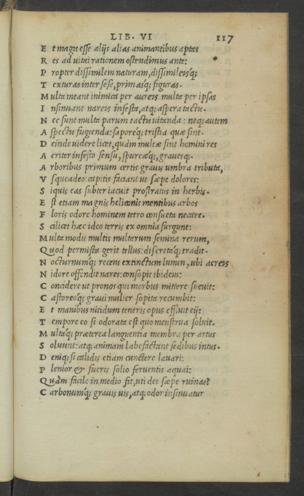 LIB. VI 117
E t magis esse alijs alias animantibus aptas
R es ad uitæ rationem ostendimus ante:
P ropter dissimilem naturam, dissimilesq;
T exturas inter sese, primasq; figuras.
M ulta meant inimica per aureis multa per ipsas
I nsinuant nareis infesta, atq; aspera tactu.
N ec sunt multa parum tactu uitanda: neq; autem
A spectu fugienda: saporeq; tristia quæ sint.
D einde uidere licet, quàm multæ sint homini res
A criter infesto sensu, spurcæq;, grauesq;.
A rboribus primum certis grauis umbra tributa,
V sq; adeo: capitis faciant ut sæpe dolores:
S iquis eas subter iacuit prostratus in herbis.
E st etiam magnis heliconis montibus arbos
F loris odore hominem tetro consueta necare.
S cilicet hæc ideo terris ex omnia surgunt:
M ulta modis multis multarum semina rerum,
Q uod permista gerit tellus: discretaq; tradit.
N octurnumq; recens extinctum lumen, ubi acreis
N idore offendit nareis: consopit ibidem:
C oncidere ut pronos qui morbus mittere sæuit:
C astoreoq; graui mulier sopita recumbit:
E t manibus nitidum teneris opus effluit eij:
T empore eo si odorata est quo menstrua soluit.
M ultaq; præterea languentia membra per artus
S oluunt: atq; animam labefactant sedibus intus.
D eniq; si calidis etiam cunctere lauari:
P lenior & fueris solio feruentis aquai:
Q uàm facile in medio fit, uti des sæpe ruinas?
C arbonumq; grauis uis, atq; odor insinuatur